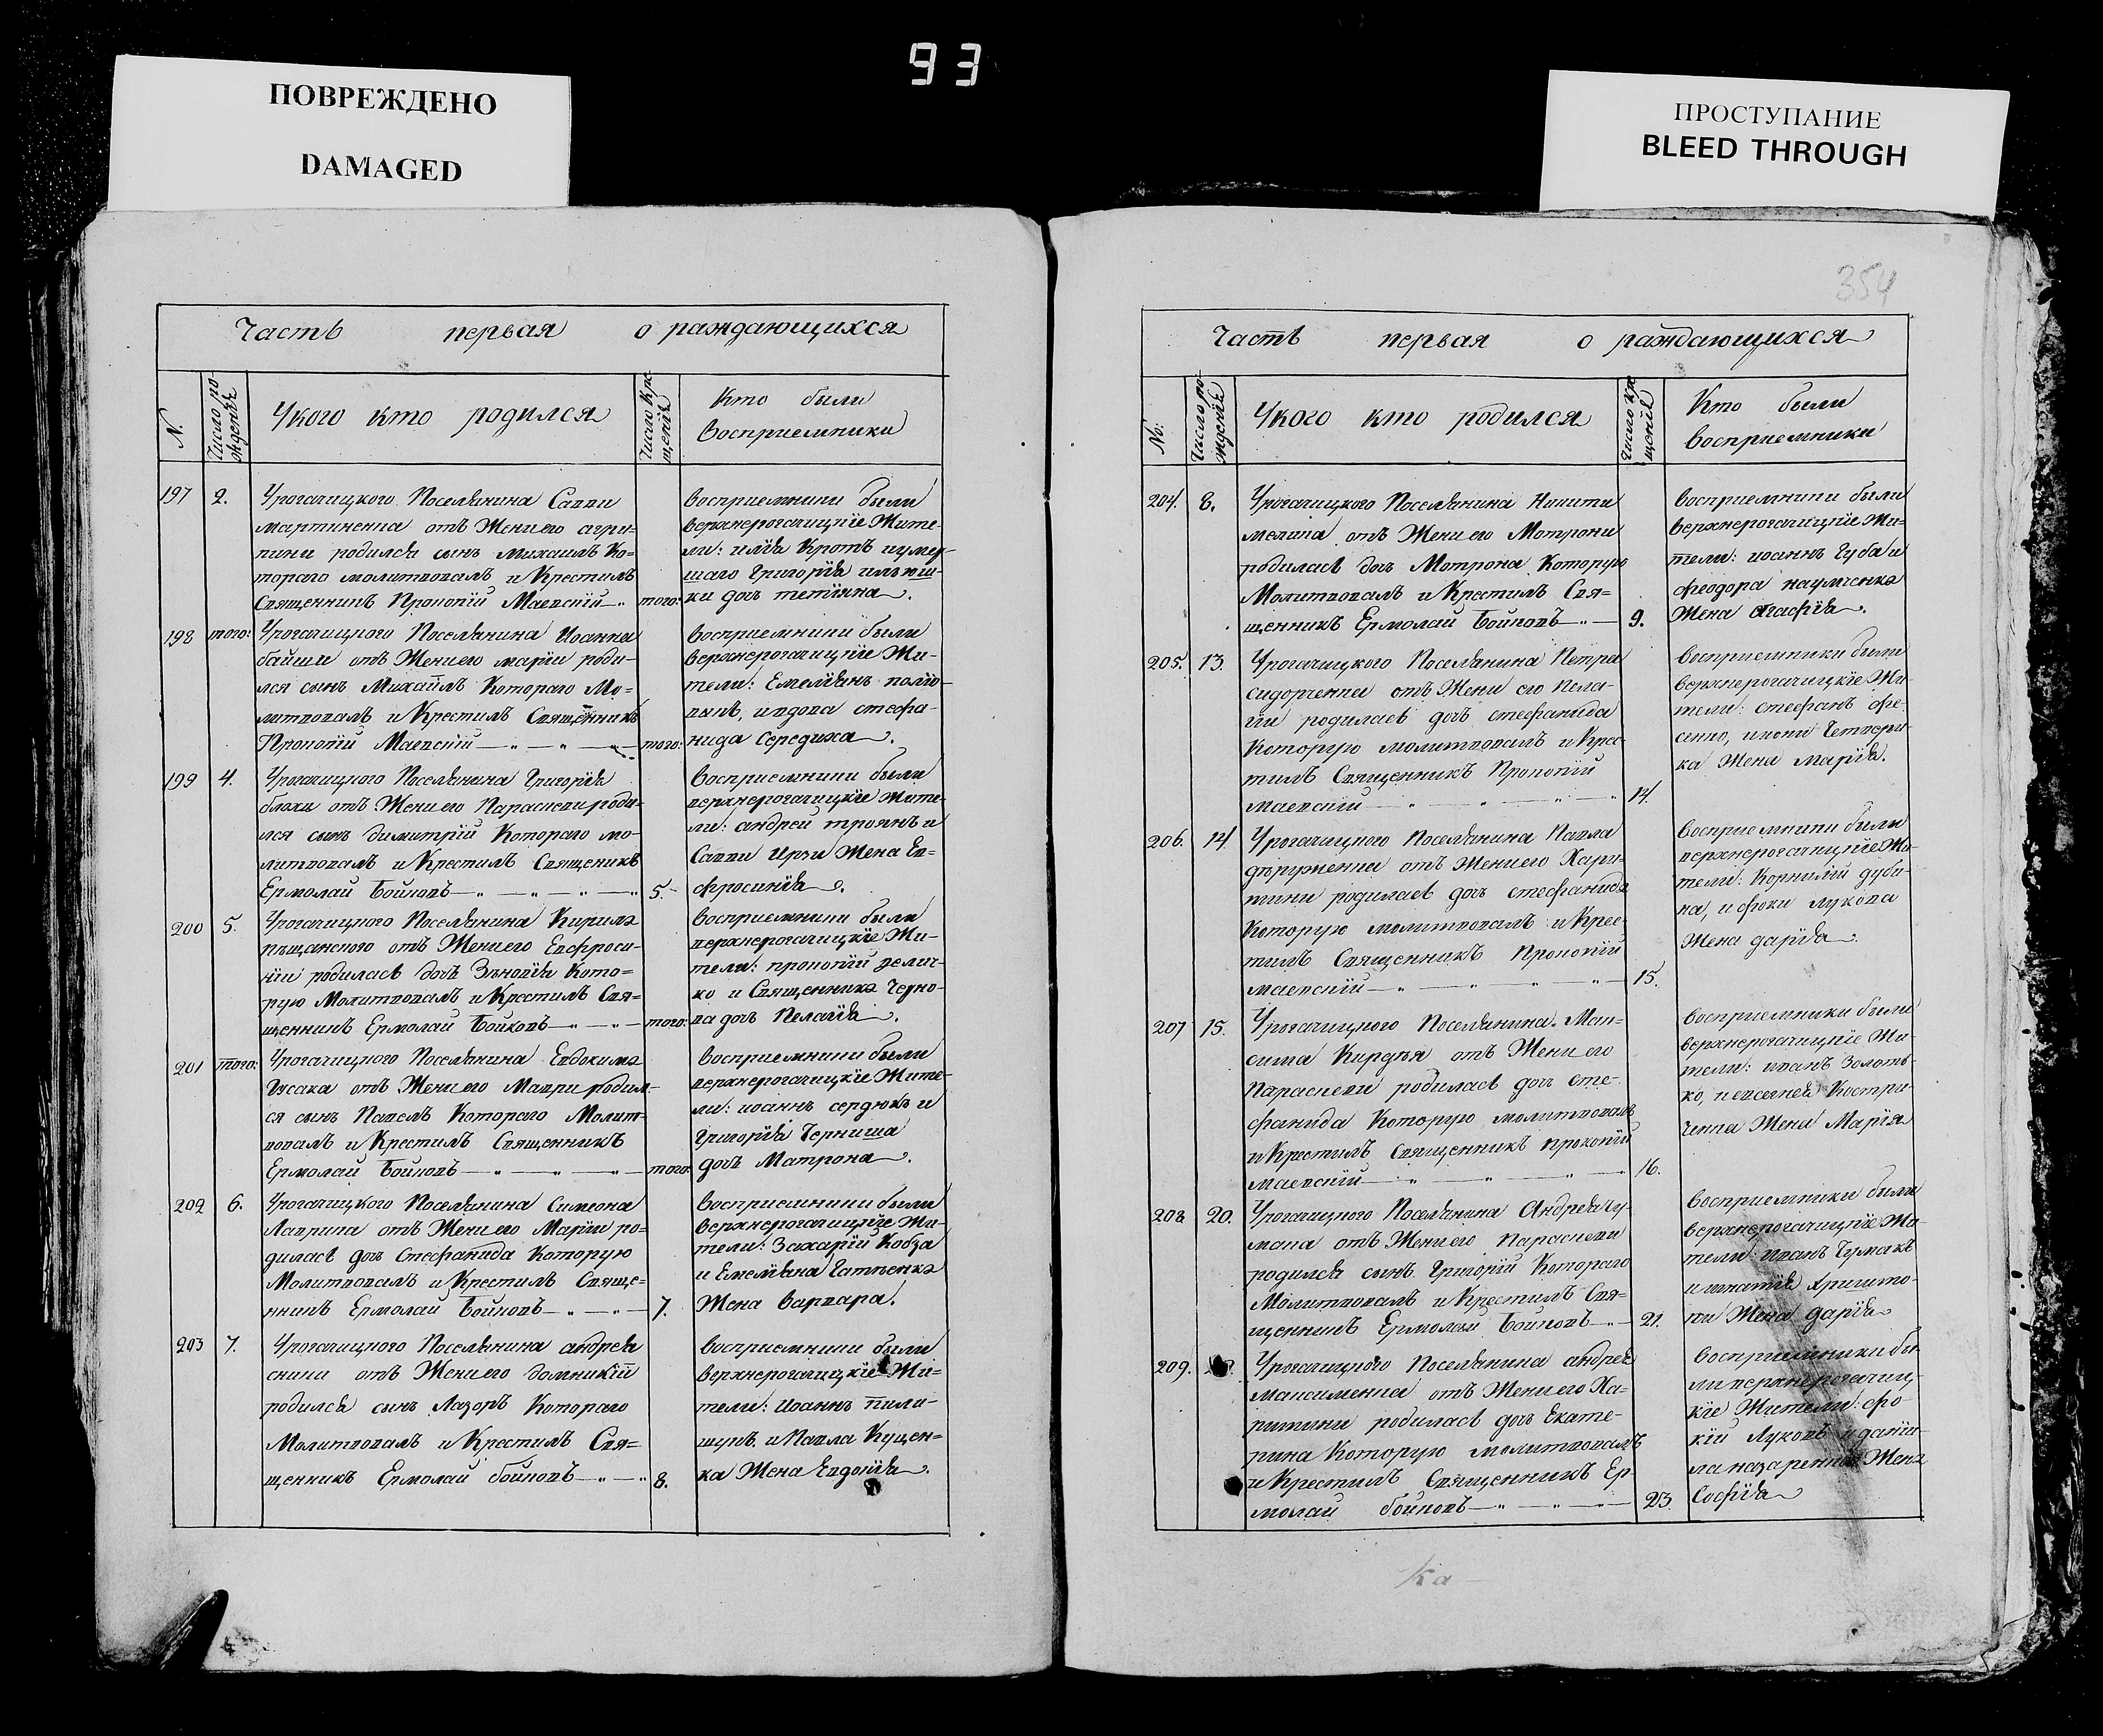 93
ПОВРЕЖДЕНО
DAMAGED
ПРОСТУПАНИЕ
BLEED THROUGH
Часть первая о раждающихся
N.
Число рождения
Укого кто родился
Число крещения
Кто были
восприемники
197 2.
Урогачицкого Поселянина Саввы
мартиненка отъ Жени его агри=
пини родился сынъ михаилъ Ко=
тораго молитвовалъ и Крестилъ
Священникъ Прокопій Маевскій того:
восприемники были
верхнерогачицкіе Жите-
ли: илія Кротъ и умер-
шаго Григорія илюш-
ки дочь тетіяна.
198 того:
Урогачицкого Поселянина Иоанна
байши отъ Жени его маріи роди-
лся сынъ Михаилъ Котораго Мо=
литвовалъ и Крестилъ Священникъ
Прокопій Маевскій того:
восприемники были
верхнерогачицкіе Жи-
тели: Емеліянъ
и вдова стефа-
нида Середиха.
199 4.
Урогачицкого Поселянина Григорія
блохи отъ Жени его Параскеви роди-
лся сынъ димитрій Котораго мо-
литвовалъ и Крестилъ Священикъ
Ермолай Бойковъ 5.
восприемники были
верхнерогачицкіе Жите-
ли: андрей троянъ и
Саввы Жена Ев=
фросинія.
200 5.
Урогачицкого Поселянина Кирила
пѣщанского отъ Жени его Евфроси-
ніи родилась дочь Зѣновія Кото=
рую Молитвовалъ и Крестилъ Свя=
щенникъ Ермолай Бойковъ того:
восприемники были
верхнерогачицкіе Жи-
тели: прокопій велич-
ко и Священника Черно-
ва дочь Пелагія.
201 того:
Урогачицкого Поселянина Евдокима
Гусака отъ Жени его Маври родил-
ся сынъ Павелъ Котораго Молит-
вовалъ и Крестилъ Священникъ
Ермолай Бойковъ того:
восприемники были
верхнерогачицкіе Жите-
ли: иоаннъ сердюкъ и
Григорія Черниша
дочь Матрона.
202 6.
Урогачицкого Поселянина Симеона
Лаврика отъ Жени его Маріи ро=
дилась дочь Стефанида Которую
Молитвовалъ и Крестилъ Свяще=
нникъ Ермолай Бойковъ 7.
восприемники были
верхнерогачицкіе Жи-
тели: Захарій Кобза
и Емеліяна
Жена варвара.
203 7.
Урогачицкого Поселянина андрея
отъ Жени его домникіи
родился сынъ Лазоръ Котораго
Молитвовалъ и Крестилъ Свя=
щенникъ Ермолай бойковъ 8.
восприемники были
верхнерогачицкіе Жи=
тели: Иоаннъ пили-
и Павла Куцен=
ка Жена Евдокія.
354
Часть первая о раждающихся
No:
Число рождения
Укого кто родился
Число крещения
Кто были
восприемники
204. 8.
Урогачицкого Поселянина Никити
отъ Жени его Мотрони
родилась дочь Мотрона Которую
Молитвовалъ и Крестилъ Свя=
щенникъ Ермолай Бойковъ 9.
восприемники были
верхнерогачицкіе Жи=
тели: иоаннъ Губа и
феодора науменка
Жена агафія.
205. 13.
Урогачицкого Поселянина Петра
сидорченка отъ Жени его Пела-
гіи родилась дочь стефанида
Которую молитвовалъ и Крес-
тилъ Священникъ Прокопій
маевскій 14.
восприемники были
верхнерогачицкіе Жи-
тели: стефанъ фе-
сенко, Четвери-
ка Жена Марія.
206. 14.
Урогачицкого Поселянина Павла
отъ Жени его Хари-
тини родилась дочь стефанида
Которую молитвовалъ и Крес-
тилъ Священникъ Прокопій
маевскій 15.
восприемники были
верхнерогачицкіе Жи-
тели: Корнилій дуби-
на, и фоки лукова
Жена дарія.
207 15.
Урогачицкого Поселянина Мак-
сима Кирдея отъ Жени его
Параскеви родилась дочь сте-
фанида Которую молитвовалъ
и Крестилъ Священникъ прокопій
маевскій 16.
восприемники были
верхнерогачицкіе Жи-
тели: иванъ Золоть-
ко, и евсегнея Костри-
ченка Жена Марія
208 20.
Урогачицкого Поселянина Андрея Чу-
мака отъ Жени его Параскеви
родился сынъ Григорій Котораго
Молитвовалъ и Крестилъ Свя=
щенникъ Ермолай Бойковъ 21.
восприемники были
верхнерогачицкіе Жи-
тели: иванъ Чумакъ
и игнатія
Жена дарія
209.
Урогачицкого Поселянина андрея
Максименка отъ Жени его Ха-
ритини родилась дочь Екате-
рина Которую молитвовалъ
и Крестилъ Священникъ Ер
молай бойковъ 23.
восприемники бы
ли верхнерогачиц-
кіе Жители: фо-
кій Луковъ и дани-
ла назаренка Жена
Софія
Ка